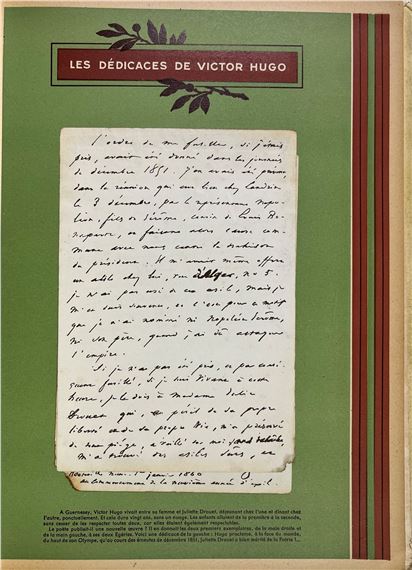 LES DÉDICACES DE VICTOR HUGO
l'ordre de me fusiller, si j'étais
pris, avait été donné dans les journées
de décembre 1851. J'en avais été prévenu
dans la réunion qui eut lieu chez Landrin
le 3 décembre, par le prisonnier Napo-
léon, fils de Jérôme, cousin de Louis Bo-
naparte, et faisant alors cause com-
mune avec nous contre la trahison
du président. Il m'avait même offert
un asile chez lui, rue d'Alger, no 5.
je n'ai pas usé de cet asile, mais je
m'en suis souvenu, et c'est pour ce motif
que je n'ai nommé ni Napoléon-Jérôme,
ni son père, quand j'ai dû attaquer
l'empire.
Si je n'ai pas été pris, et par consé-
quent fusillé, si je suis vivant à cette
heure, je le dois à Madame Juliette
Drouet qui, au péril de sa propre
liberté et de sa propre vie, m'a préservé
de tout piège, a veillé sur moi sans relâche,
m'a trouvé des asiles sûrs, et
1er janvier 1860
au commencement de la neuvième année d'exil.
A Guernesey, Victor Hugo vivait entre sa femme et Juliette Drouet, déjeunant chez l'une et dînant chez
l'autre, ponctuellement. Et cela dura vingt ans, sans un nuage. Les enfants allaient de la première à la seconde,
sans cesser de les respecter toutes deux, car elles étaient également respectables.
Le poète publiait-il une nouvelle œuvre ? Il en donnait les deux premiers exemplaires, de la main droite et
de la main gauche, à ses deux Egéries. Voici une dédicace de la gauche : Hugo proclame, à la face du monde,
du haut de son Olympe, qu'au cours des émeutes de décembre 1851, Juliette Drouet a bien mérité de la Patrie !...